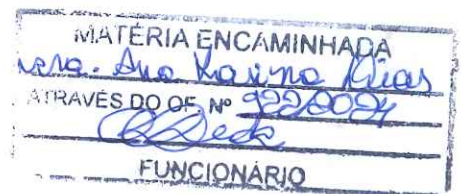 MATÉRIA ENCAMINHADA
Ana Karina Dias
ATRAVÉS DO OF. Nº 922/2024
FUNCIONÁRIO